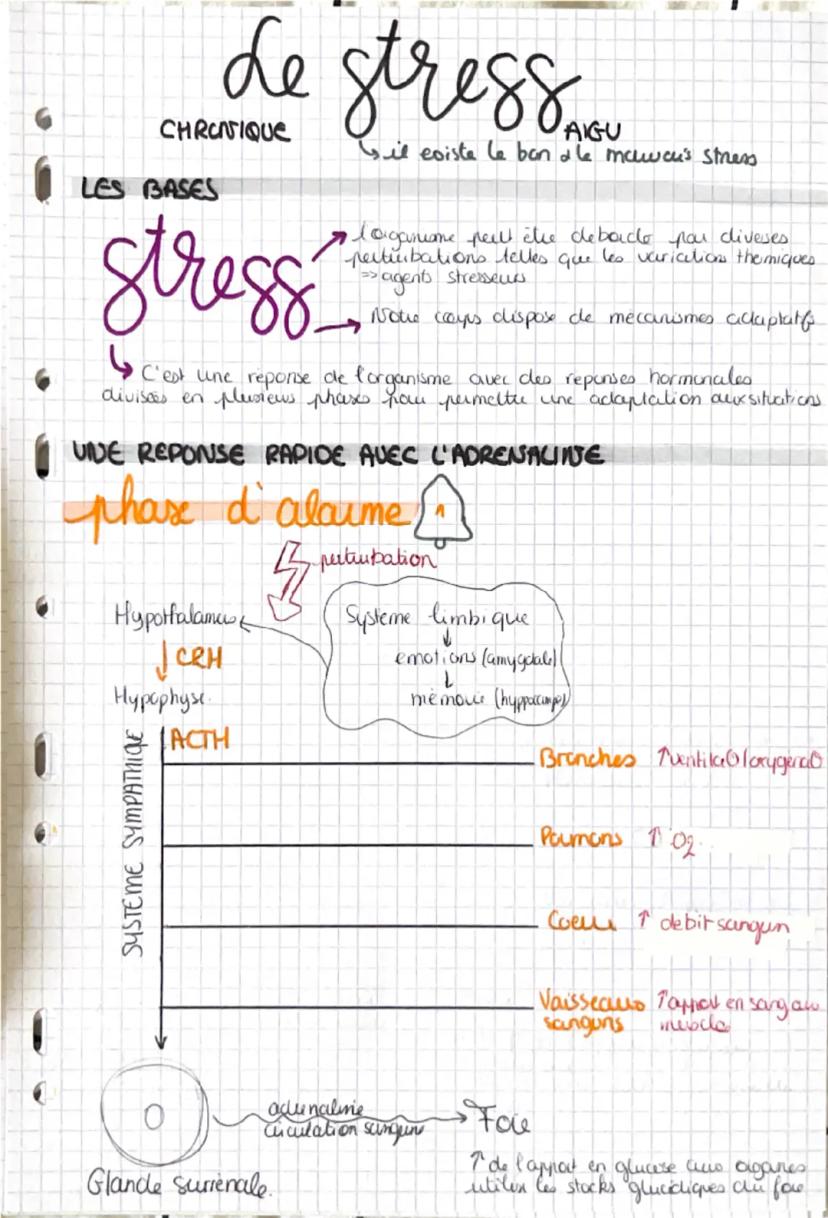 Le stress
CHRONIQUE
AIGU
↳ il existe le bon & le mauvais stress
LES BASES
stress
l'organisme peut être debordé par diverses
perturbations telles que les variations thermiques
=> agents stresseurs
Notre corps dispose de mécanismes adaptatifs
C'est une réponse de l'organisme avec des réponses hormonales
divisées en plusieurs phases pour permettre une adaptation aux situations
UNE REPONSE RAPIDE AVEC L'ADRENALINE
phase d'alarme
perturbation
Hypothalamus
Système limbique
CRH
émotions (amygdale)
Hypophyse
mémoire (hippocampe)
ACTH
SYSTEME SYMPATHIQUE
Bronches ↑ventilaO/oxygénaO
Poumons ↑ O2
Coeur ↑ débit sanguin
Vaisseaux ↑apport en sang au
sanguins muscle
adrenaline
circulation sanguine
Foie
Glande surrénale.
↑ de l'apport en glucose aux organes
utilise les stocks glucidiques du foie